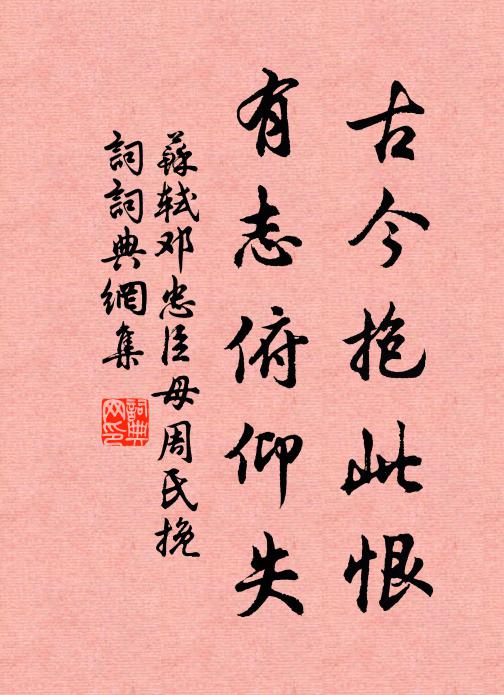 古今抱此恨
有志俯仰失
蘇軾邓忠臣母周氏挽
詞詞典網集
詞典网印